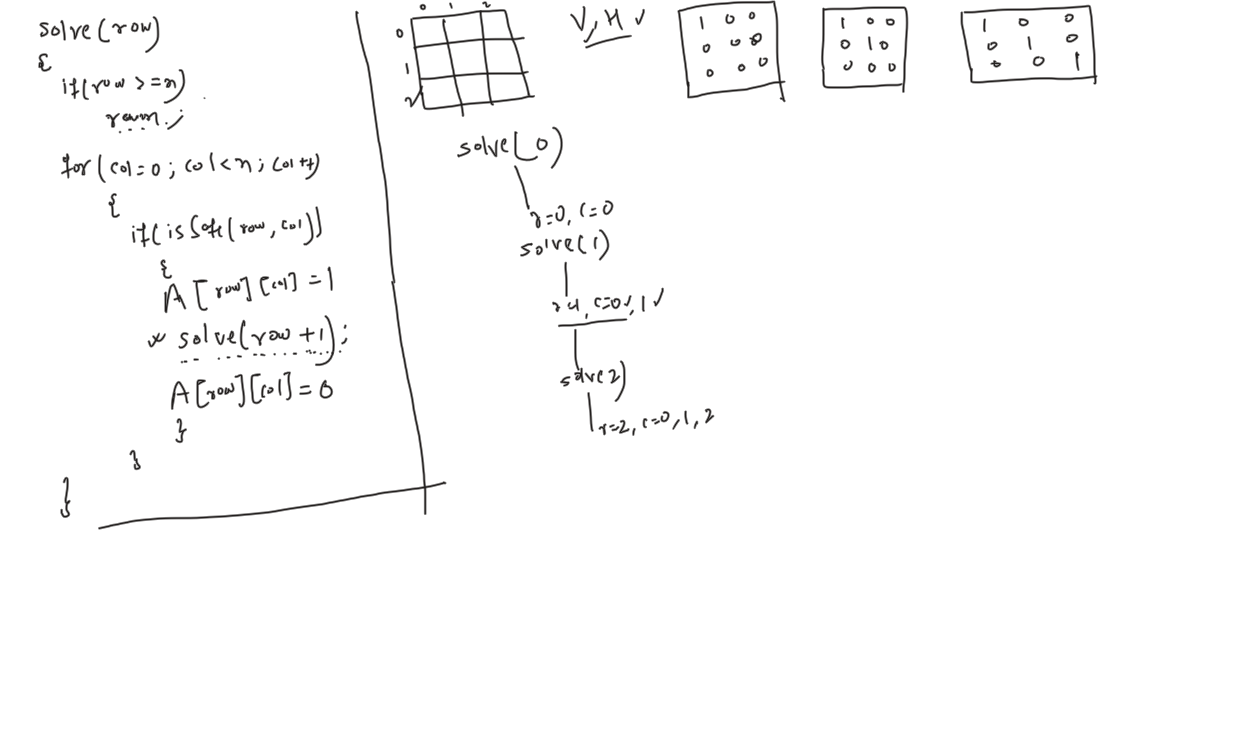 solve(row)
{
if(row >=n)
return;
for(col=0; col<n; col++)
{
if(isSafe(row, col))
{
A[row][col] = 1
* solve(row +1);
A[row][col] = 0
}
}
}
0 1 2
0
1
2
V, H ✓
1 0 0
0 0 0
0 0 0
1 0 0
0 1 0
0 0 0
1 0 0
0 1 0
0 0 1
solve(0)
r=0, c=0
solve(1)
r=1, c=0✓, 1 ✓
solve2)
r=2, c=0, 1, 2